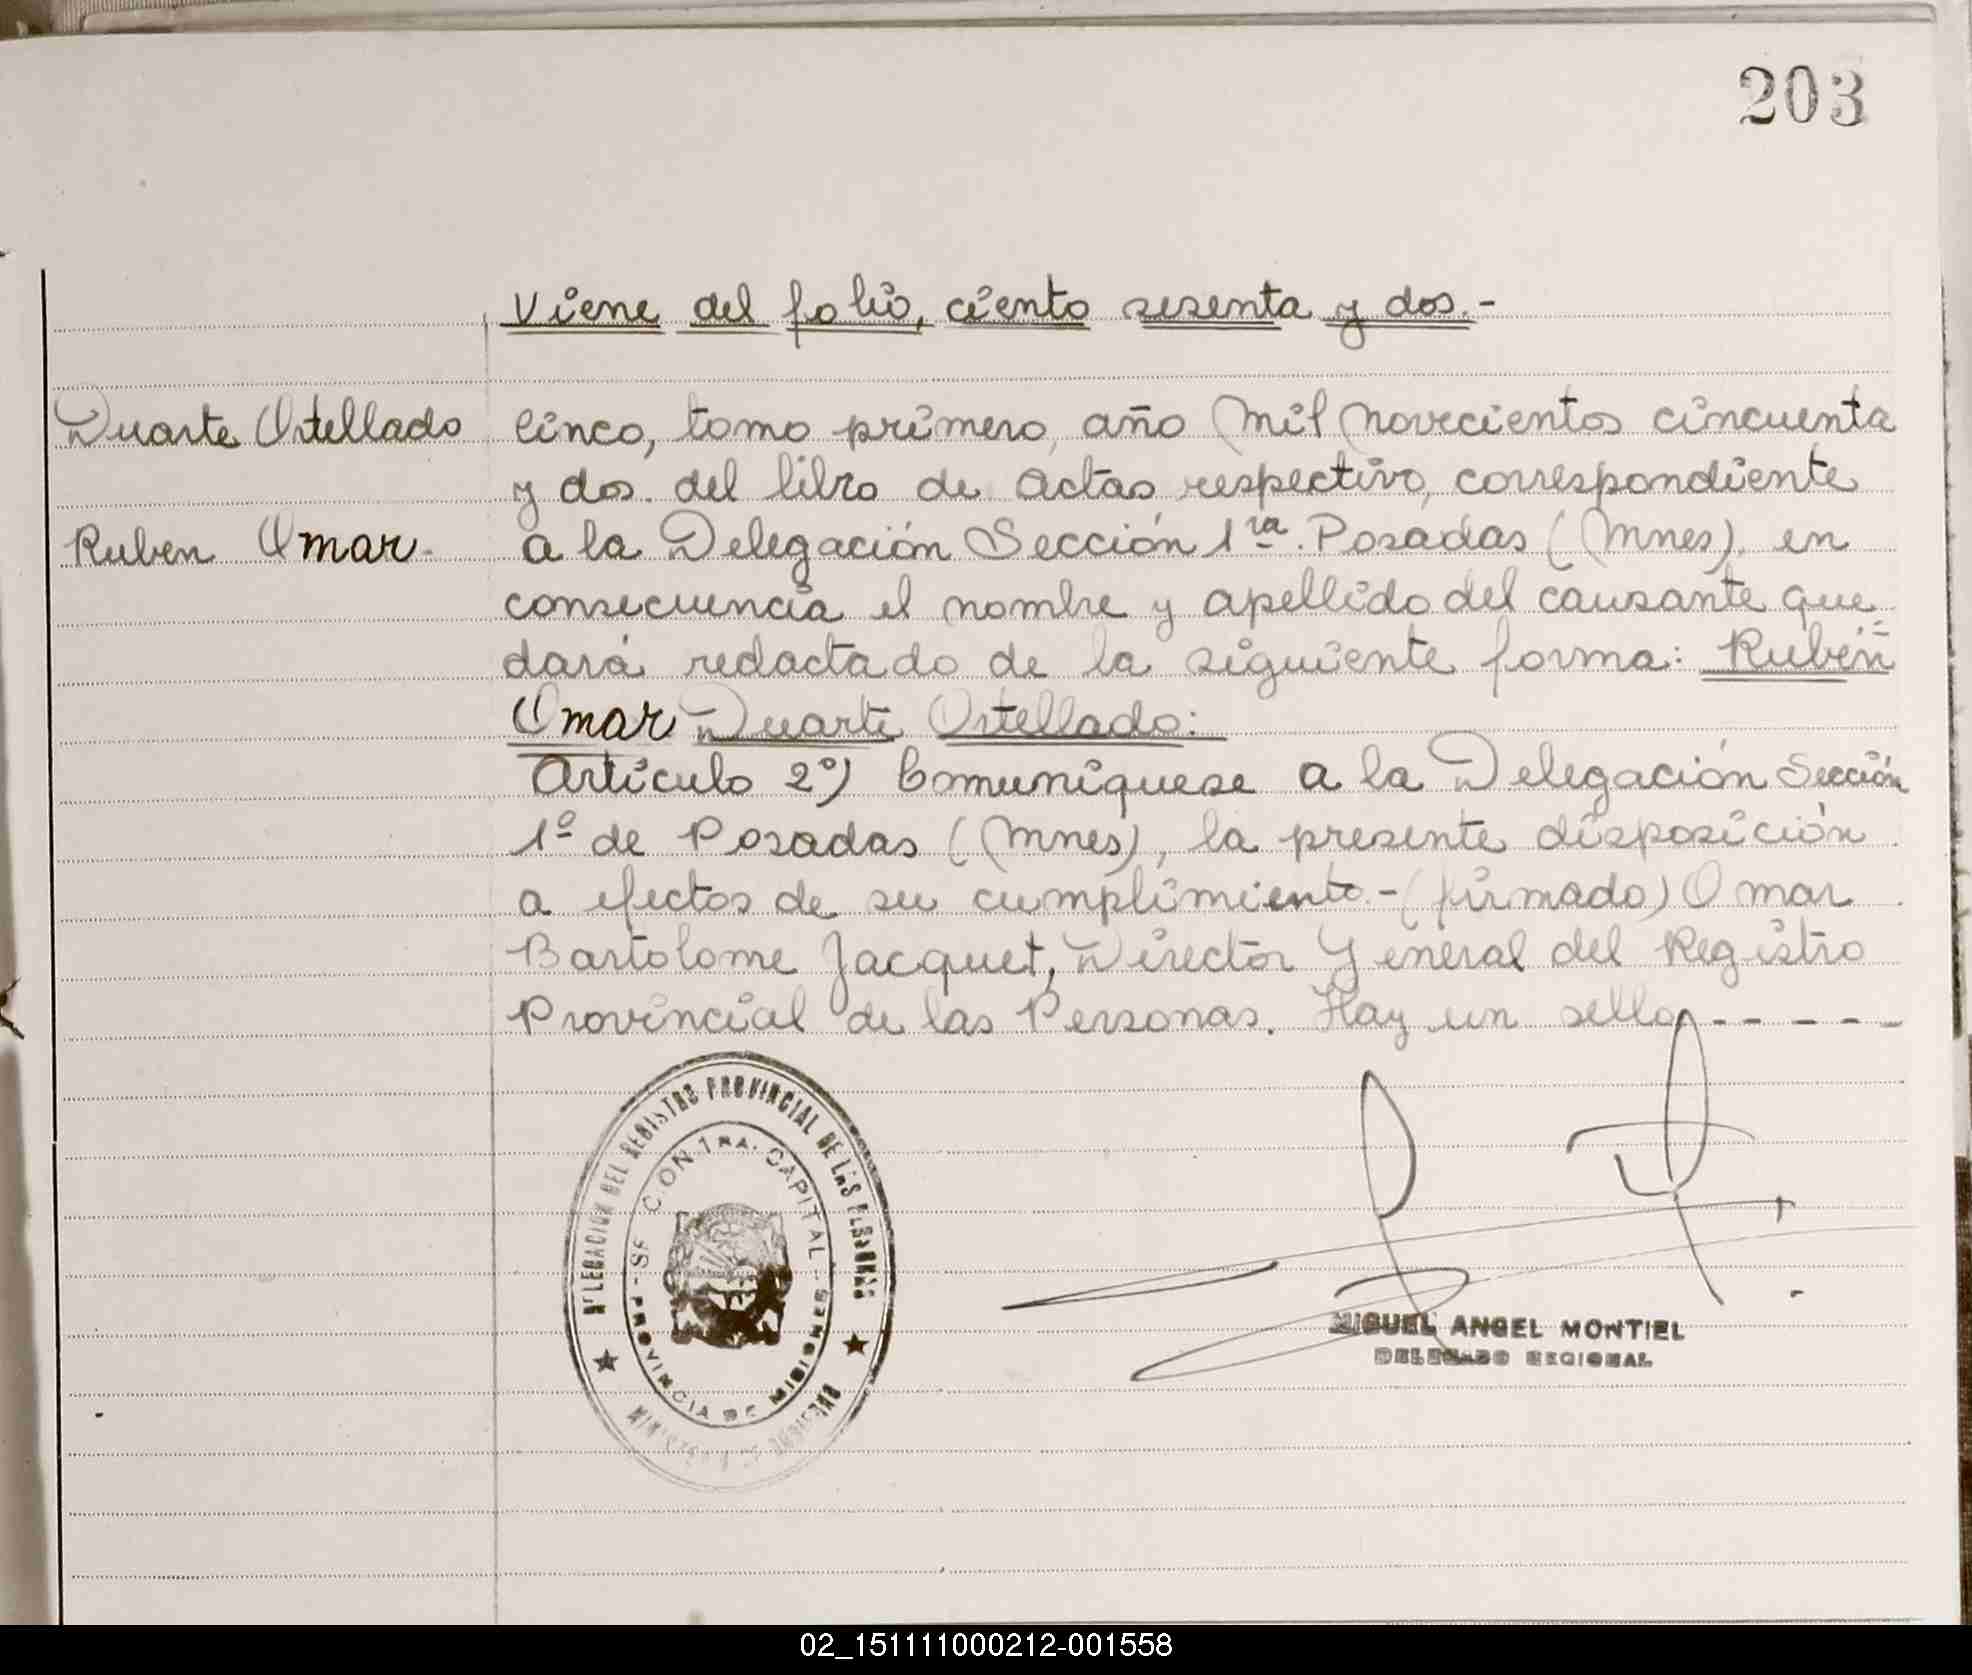 203
Viene del folio, ciento sesenta y dos.-
Duarte Ortellado
Ruben Omar.
Cinco, tomo primero, año Mil Novecientos cincuenta
y dos. del libro de actas respectivo, correspondiente
a la Delegación Sección 1ra. Posadas (Mnes), en
consecuencia el nombre y apellido del causante que
dará redactado de la siguiente forma: Rubén
Omar Duarte Ortellado:
Artículo 2º) Comuníquese a la Delegación Sección
1º de Posadas (Mnes), la presente disposición
a efectos de su cumplimiento.-(firmado) Omar
Bartolome Jacquet, Director General del Registro
Provincial de las Personas. Hay un sello - - - - -
DELEGACION DEL REGISTRO PROVINCIAL DE LAS PERSONAS
SECCION 1RA. CAPITAL - PROVINCIA DE MISIONES
MINISTERIO DE GOBIERNO
MIGUEL ANGEL MONTIEL
DELEGADO REGIONAL
02_151111000212-001558